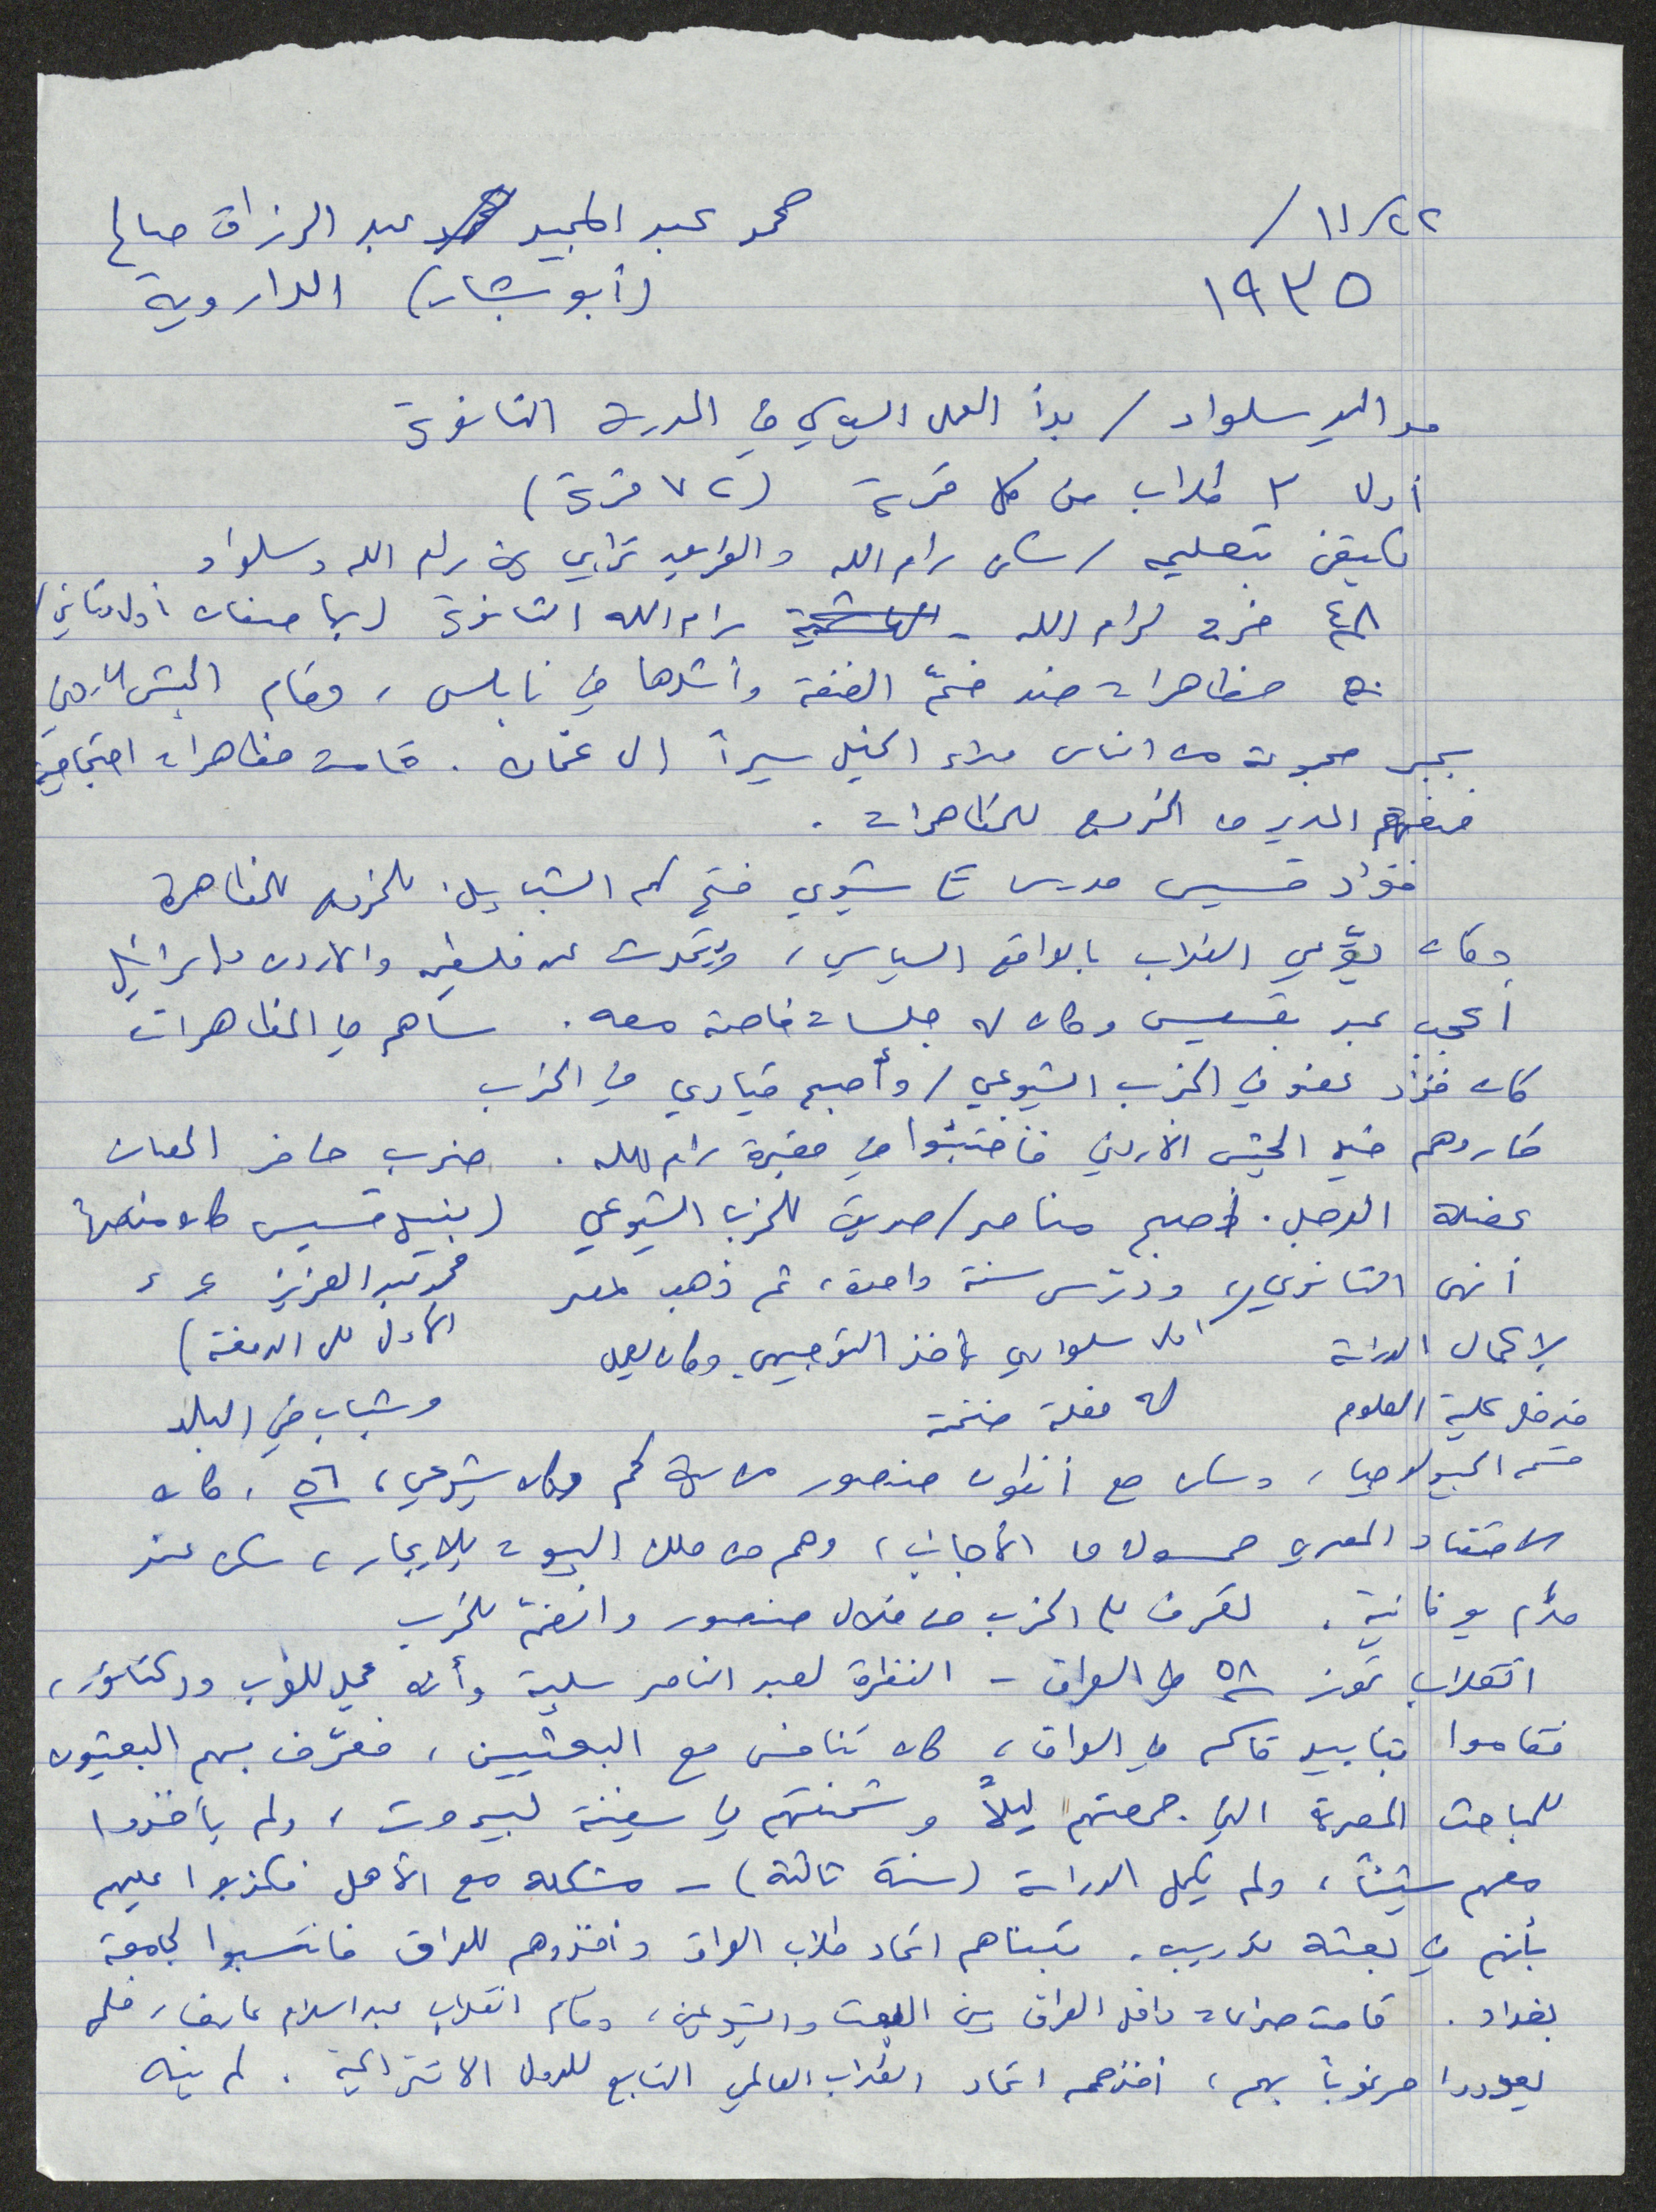 ٢٢/١١/ محمد عبد المجيد عبد الرزاق صالح
١٩٣٥ (أبو بشار) الداروية
مواليد سلواد / بدأ العمل السياسي في المدرسة الثانوية
أول ٣ طلاب من كل قرية (٧٢ قرية)
بتعليمه / سكن رام الله والمواعيد ترابي بين رام الله وسلواد
٤٨ خرج لرام الله - رام الله الثانوية (بها صفان أول وثاني)
٥٠ مظاهرات ضد ضمّ الضفة وأشدها في نابلس، وقام الجيش الأردني
بجر مجموعة من الناس وراء الخيل سيراً إلى عمّان. قامت مظاهرات احتجاجية
فمنعهم المدير من الخروج للمظاهرات.
فؤاد قسيس مدرس شيوعي فتح لهم الشبابيك للخروج للمظاهرة
وكان يوّعي الطلاب بالواقع السياسي، ويتحدث عن فلسطين والأردن وإسرائيل
أعجب عبد بقسيس وكان له جلسات خاصة معه. ساهم في المظاهرات
كان فؤاد عضو في الحزب الشيوعي / وأصبح قيادي في الحزب
طاردهم خيل الجيش الأردني فاختبئوا في مقبرة رام الله. ضرب حافر الحصان
عضلة الرجل. أصبح مناصر/صديق للحزب الشيوعي (نبيل قسيس كان منهم
أنهى الثانوي، ودرّس سنة واحدة، ثم ذهب لمصر محمد عبد العزيز
لإكمال الدراسة أول سلوادي يأخذ التوجيهي وكان يعمل الأول على الدفعة)
فدخل كلية العلوم له حفلة ضخمة وشباب في البلد
قسم الجيولوجيا، وسكن مع أنطوان منصور من بيت لحم وكان شيوعي، ٥٦، كان
الاقتصاد المصري محمول من الأجانب، وهم من ملك البيوت للإيجار، سكن عند
مدام يونانية. تعرف على الحزب من خلال منصور وانضمّ للحزب
انقلاب تموز ٥٨ في العراق - النظرة لعبد الناصر سلبية وأنه عميل للغرب ودكتاتور،
فقاموا بتأييد قاسم في العراق، كان تنافس مع البعثيين، فعرّف بهم البعثيون
للمباحث المصرية التي جمعتهم ليلاً وشحنتهم في سفينة لبيروت، ولم يأخذوا
معهم شيئاً، ولم يكمل الدراسة (سنة ثالثة) - مشكلة مع الأهل فكذبوا عليهم
بأنهم في بعثة تدريب. تبناهم اتحاد طلاب العراق وأخذوهم للعراق فانتسبوا لجامعة
بغداد. قامت صراعات داخل العراق بين البعث والشيوعيين، وقام انقلاب عبد السلام عارف، فلم
يعودوا مرغوباً بهم، أخذهم اتحاد الطلاب العالمي التابع للدول الاشتراكية. لم ينه